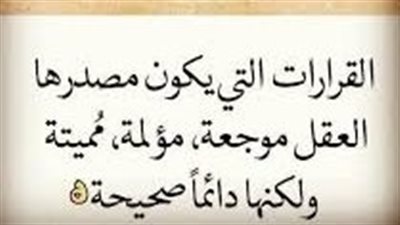 القرارات التي يكون مصدرها
العقل موجعة، مؤلمة، مُميتة
ولكنها دائماً صحيحة